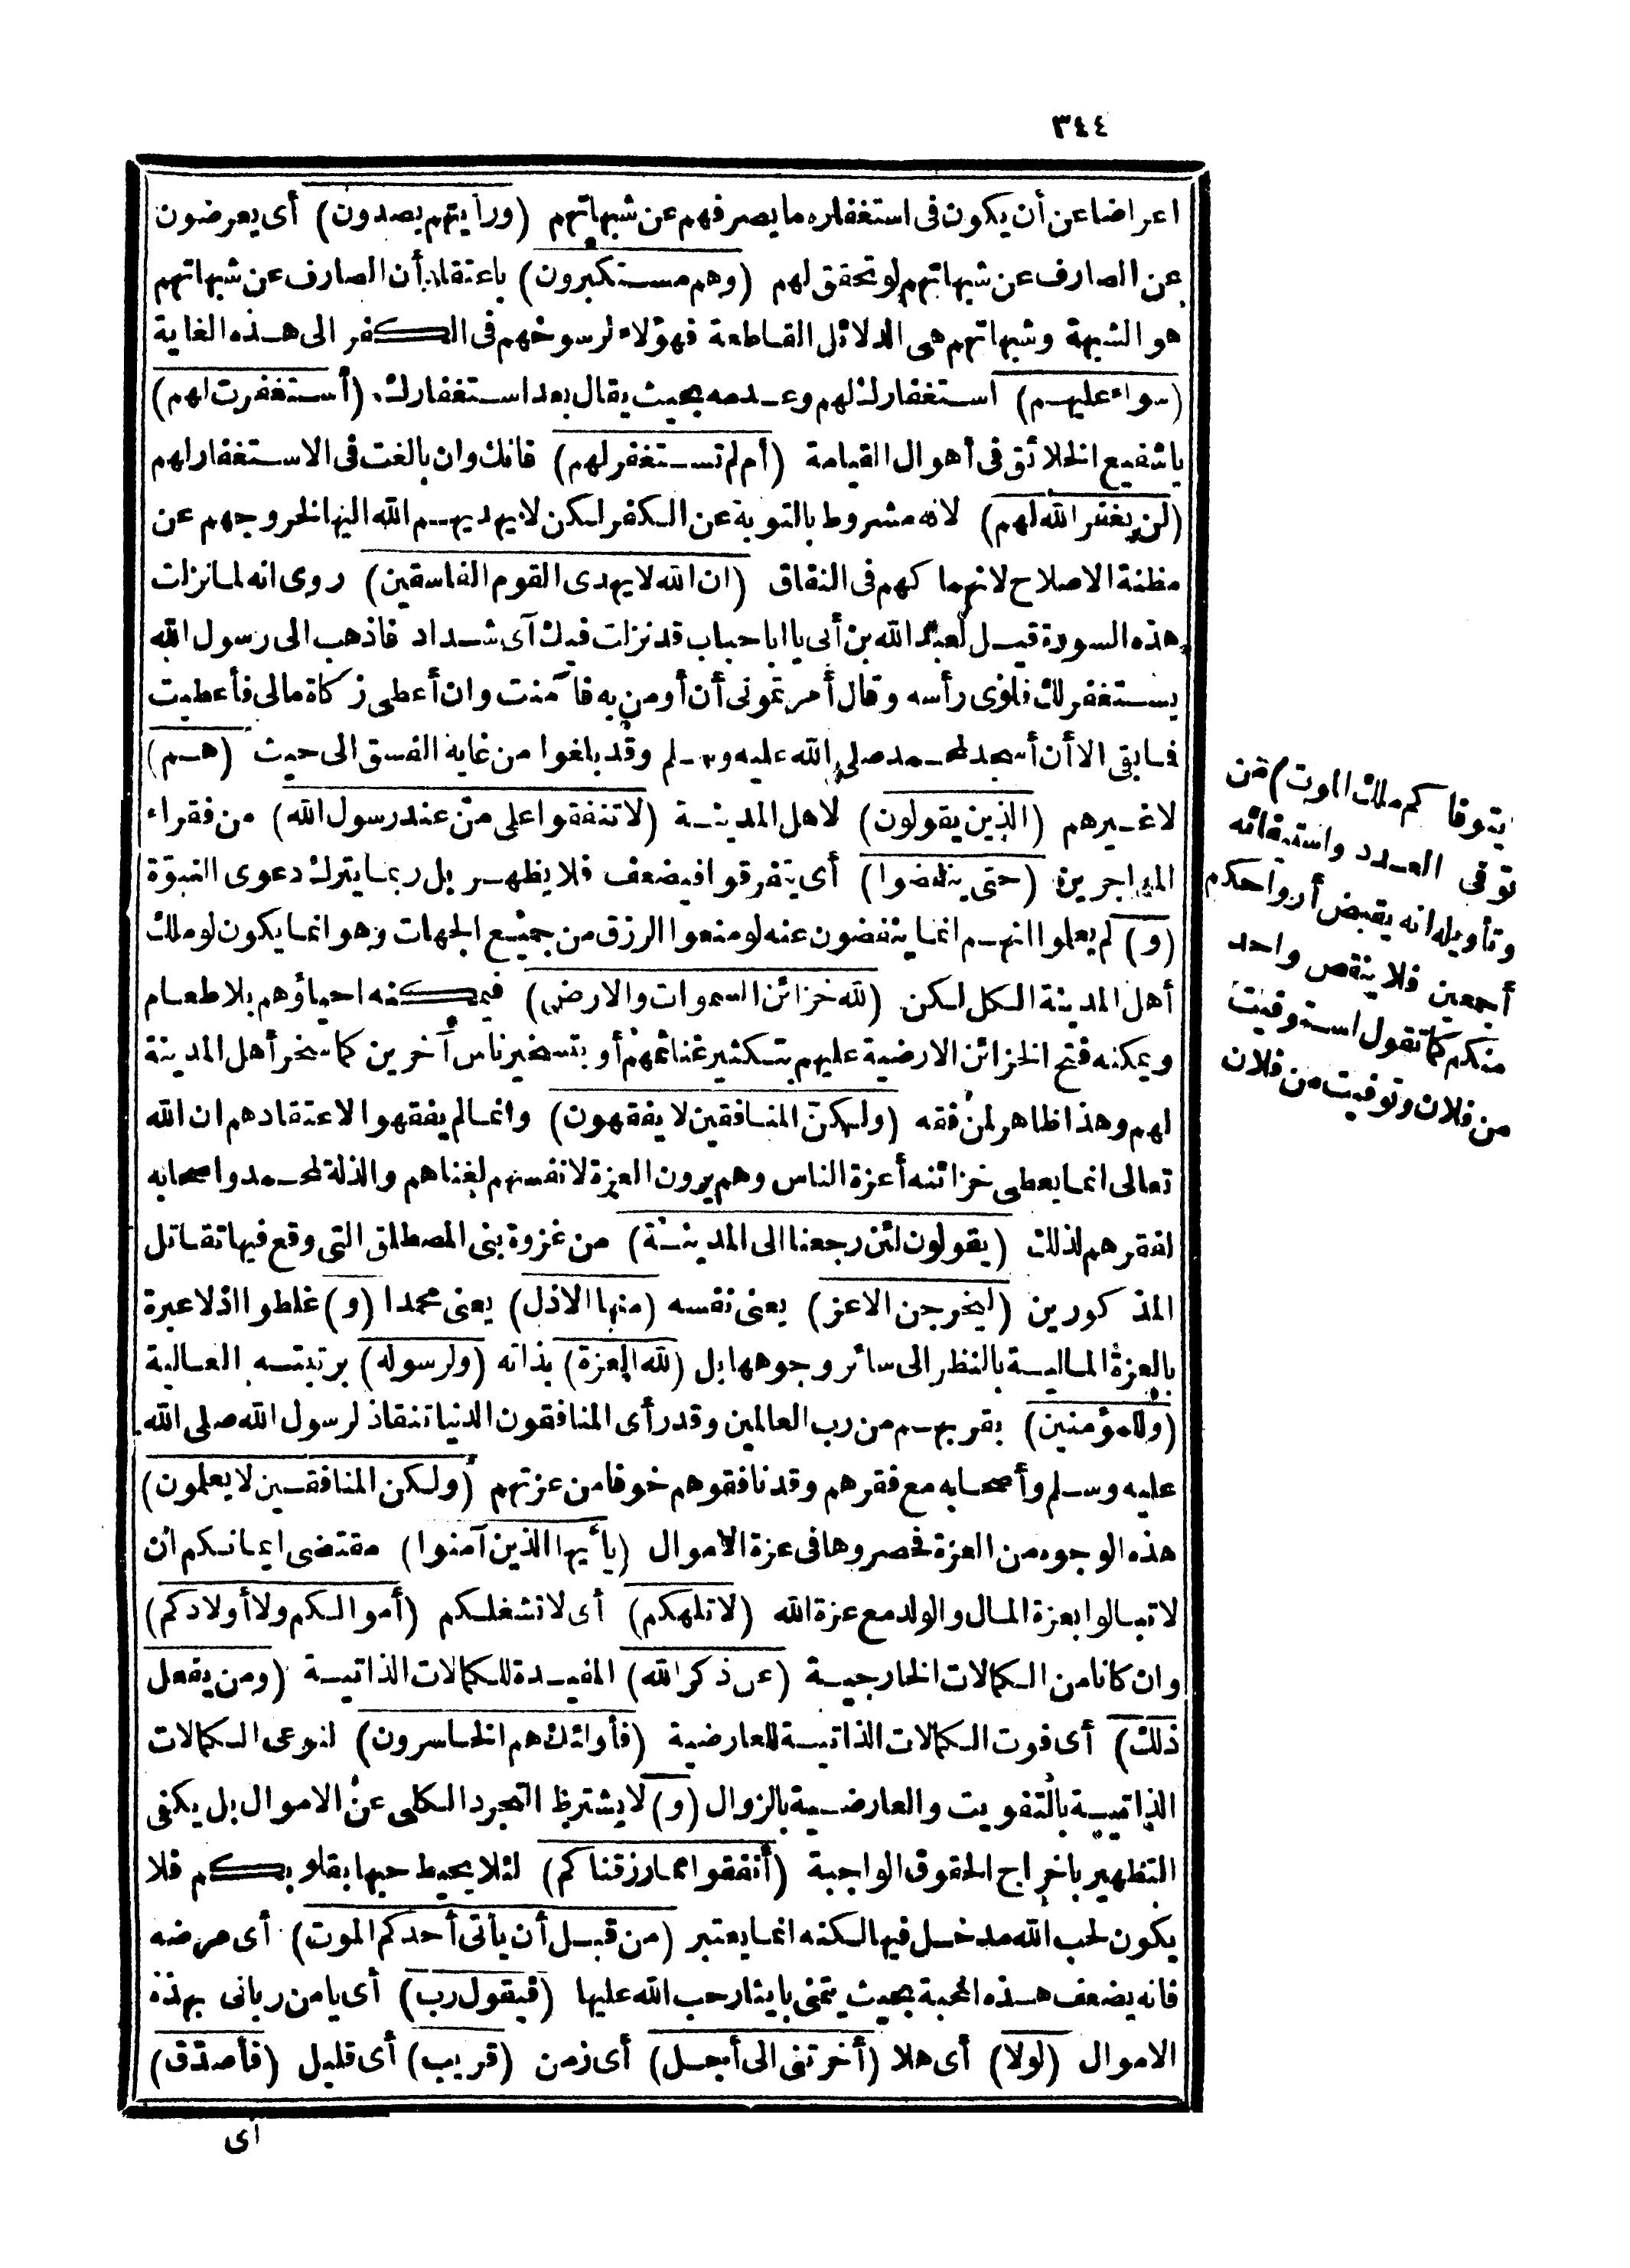 ٣٤٤
اعراضا عن أن يكون فى استغفاره ما يصرفهم عن شبهاتهم (ورأيتهم يصدون) أى يعرضون
عن الصارف عن شبهاتهم لو تحقق لهم (وهم مستكبرون) باعتقاد أن الصارف عن شبهاتهم
هو الشبهة وشبهاتهم هى الدلائل القاطعة فهؤلاء لرسوخهم فى الكفر الى هذه الغاية
(سواء عليهم) استغفارك لهم وعدمه بحيث يقال بعد استغفارك (أستغفرت لهم)
يا شفيع الخلائق فى أهوال القيامة (أم لم تستغفر لهم) فانك وان بالغت فى الاستغفار لهم
(لن يغفر الله لهم) لانه مشروط بالتوبة عن الكفر لكن لا يهديهم الله اليها لخروجهم عن
مظنة الاصلاح لانهما كهم فى النفاق (ان الله لا يهدى القوم الفاسقين) روى انه لما نزلت
هذه السورة قيل لعبد الله بن أبى يا ابا حباب قد نزلت فيك آى شداد فاذهب الى رسول الله
يستغفر لك فلوى رأسه وقال أمرتمونى أن أومن به فآمنت وان أعطى زكاة مالى فأعطيت
فما بقى الا أن أسجد لمحمد صلى الله عليه وسلم وقد بلغوا من غاية الفسق الى حيث (هم)
لا غيرهم (الذين يقولون) لاهل المدينة (لا تنفقوا على من عند رسول الله) من فقراء
المهاجرين (حتى ينفضوا) أى يتفرقوا فيضعف فلا يظهر بل ربما يترك دعوى النبوّة
(و) لم يعلموا انهم انما ينفضون عنه لو منعوا الرزق من جميع الجهات وهو انما يكون لو ملك
أهل المدينة الكل لكن (لله خزائن السموات والارض) فيمكنه احياؤهم بلا طعام
ويمكنه فتح الخزائن الارضية عليهم بتكثير غنائمهم أو بتسخير ناس آخرين كما سخر أهل المدينة
لهم وهذا ظاهر لمن فقه (ولكنّ المنافقين لا يفقهون) وانما لم يفقهوا لاعتقادهم ان الله
تعالى انما يعطى خزائنه أعزة الناس وهم يرون العزة لانفسهم لغناهم والذلة لمحمد واصحابه
لفقرهم لذلك (يقولون لئن رجعنا الى المدينة) من غزوة بنى المصطلق التى وقع فيها تقاتل
المذكورين (ليخرجن الاعز) يعنى نفسه (منها الاذل) يعنى محمدا (و) غلطوا اذ لا عبرة
بالعزة المالية بالنظر الى سائر وجوهها بل (لله العزة) بذاته (ولرسوله) برتبته العالية
(وللمؤمنين) بقربهم من رب العالمين وقد رأى المنافقون الدنيا تنقاذ لرسول الله صلى الله
عليه وسلم وأصحابه مع فقرهم وقد نافقوهم خوفا من عزتهم (ولكن المنافقين لا يعلمون)
هذه الوجوه من العزة فحصروها فى عزة الاموال (يا أيها الذين آمنوا) مقتضى ايمانكم أن
لا تبالوا بعزة المال والولد مع عزة الله (لا تلهكم) أى لا تشغلكم (أموالكم ولا أولادكم)
وان كانا من الكمالات الخارجية (عن ذكر الله) المفيدة للكمالات الذاتية (ومن يفعل
ذلك) أى فوت الكمالات الذاتية للعارضية (فأولئك هم الخاسرون) لنوعى الكمالات
الذاتية بالتفويت والعارضية بالزوال (و) لا يشترط التجرد الكلى عن الاموال بل يكفى
التطهير باخراج الحقوق الواجبة (أنفقوا مما رزقناكم) لئلا يحيط حبها بقلوبكم فلا
يكون لحب الله مدخل فيها لكنه انما يعتبر (من قبل أن يأتى أحدكم الموت) أى مرضه
فانه يضعف هذه المحبة بحيث يتمنى بايثار حب الله عليها (فيقول رب) أى يا من ربانى بهذه
الاموال (لولا) أى هلا (أخرتنى الى أجل) أى زمن (قريب) أى قليل (فأصدّق)
أى
يتوفاكم ملك الموت) من
توفى العدد واستيفائه
وتأويله انه يقبض أرواحكم
أجمعين فلا ينقص واحد
منكم كما تقول استوفيت
من فلان وتوفيت من فلان